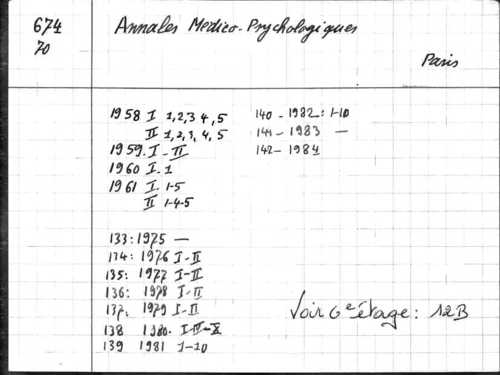 674
70
Annales Medico-Psychologiques
Paris
1958 I 1,2,3 4,5
II 1,2,3,4,5
1959. I - II
1960 I. 1
1961 I. 1-5
II 1-4-5
133: 1975 —
134: 1976 I-II
135: 1977 I-II
136: 1978 I-II
137. 1979 I-II
138 1980.
139 1981 1-10
140 - 1982: 1-10
141 - 1983 —
142 - 1984
Voir 6e étage: 12B